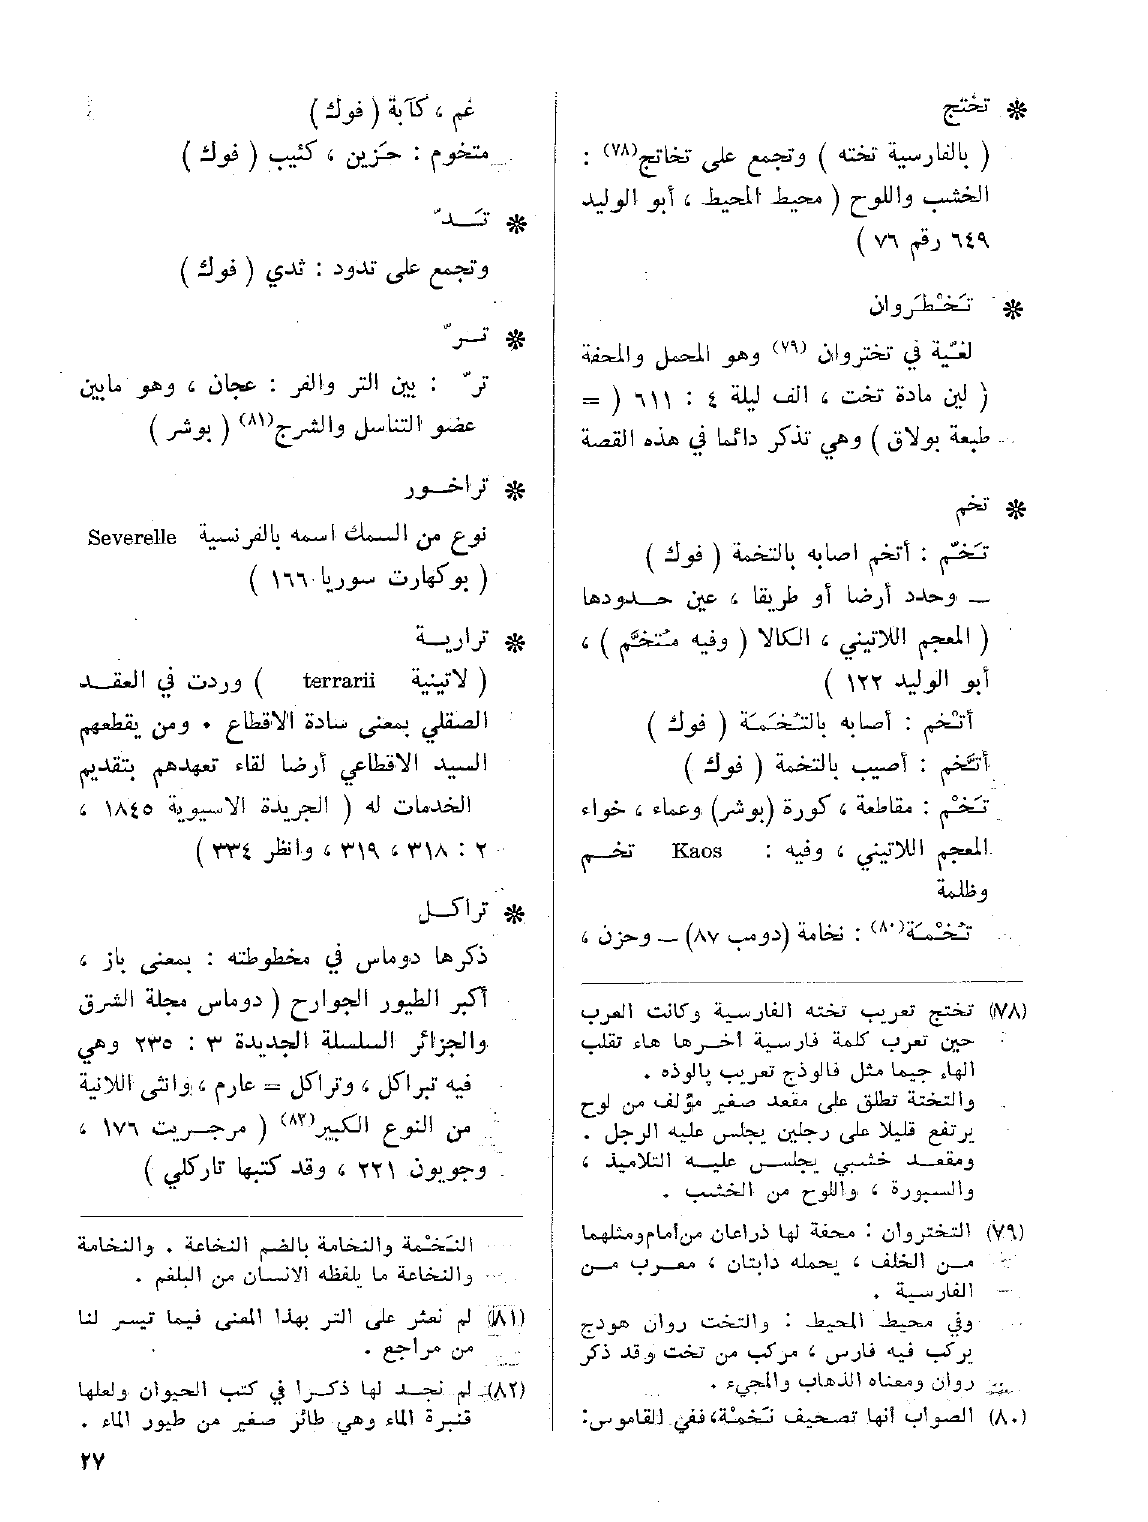 * تختج
( بالفارسية تخته ) وتجمع على تخاتج(٧٨) :
الخشب واللوح ( محيط المحيط ، أبو الوليد
٦٤٩ رقم ٧٦ )
* تَخْطَروان
لغيّة في تختروان (٧٩) وهو المحمل والمحفة
( لين مادة تخت ، الف ليلة ٤ : ٦١١ ( =
طبعة بولاق ) وهي تذكر دائما في هذه القصة
* تخم
تَخّم : أتخم اصابه بالتخمة ( فوك )
ــ وحدد أرضا أو طريقا ، عين حدودها
( المعجم اللاتيني ، الكالا ( وفيه مُتَخَّم ) ،
أبو الوليد ١٢٢ )
أتْخم : أصابه بالتُخَمَة ( فوك )
أتَّخم : أصيب بالتخمة ( فوك )
تَخْم : مقاطعة ، كورة (بوشر) وعماء ، خواء
المعجم اللاتيني ، وفيه : Kaos تخم
وظلمة
تُخْمَة(٨٠) : نخامة (دومب ٨٧) ــ وحزن ،
(٧٨) تختج تعريب تخته الفارسية وكانت العرب
حين تعرب كلمة فارسية أخرها هاء تقلب
الهاء جيما مثل فالوذج تعريب پالوذه .
والتختة تطلق على مقعد صغير مؤلف من لوح
يرتفع قليلا على رجلين يجلس عليه الرجل .
ومقعد خشبي يجلس عليه التلاميذ ،
والسبورة ، واللوح من الخشب .
(٧٩) التختروان : محفة لها ذراعان من أمام ومثلهما
من الخلف ، يحمله دابتان ، معرب من
الفارسية .
وفي محيط المحيط : والتخت روان هودج
يركب فيه فارس ، مركب من تخت وقد ذكر
روان ومعناه الذهاب والمجيء .
(٨٠) الصواب أنها تصحيف نَخمة، ففي القاموس:
غم ، كآبة ( فوك )
متخوم : حزين ، كئيب ( فوك )
* تَدّ
وتجمع على تدود : ثدي ( فوك )
* ترّ
ترّ : بين التر والفر : عجان ، وهو مابين
عضو التناسل والشرج(٨١) ( بوشر )
* تراخور
نوع من السمك اسمه بالفرنسية Severelle
( بوكهارت سوريا ١٦٦ )
* ترارية
( لاتينية terrarii ) وردت في العقد
الصقلي بمعنى سادة الاقطاع . ومن يقطعهم
السيد الاقطاعي أرضا لقاء تعهدهم بتقديم
الخدمات له ( الجريدة الاسيوية ١٨٤٥ ،
٢ : ٣١٨ ، ٣١٩ ، وانظر ٣٣٤ )
* تراكل
ذكرها دوماس في مخطوطته : بمعنى باز ،
أكبر الطيور الجوارح ( دوماس مجلة الشرق
والجزائر السلسلة الجديدة ٣ : ٢٣٥ وهي
فيه تبراكل ، وتراكل = عارم ، وانثى اللانية
من النوع الكبير(٨٢) ( مرجريت ١٧٦ ،
وجويون ٢٢١ ، وقد كتبها تاركلي )
النَخْمة والنخامة بالضم النخاعة . والنخامة
والنخاعة ما يلفظه الانسان من البلغم .
(٨١) لم نعثر على التر بهذا المعنى فيما تيسر لنا
من مراجع .
(٨٢) لم نجد لها ذكرا في كتب الحيوان ولعلها
قنبرة الماء وهي طائر صغير من طيور الماء .
٢٧